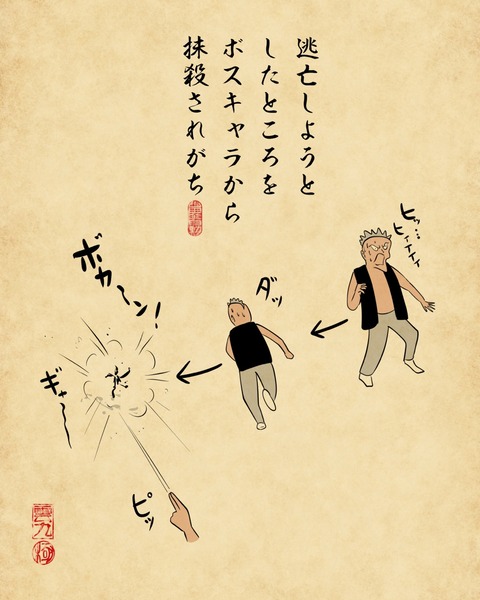 逃亡しようと
したところを
ボスキャラから
抹殺されがち
ヒッ…
ヒィィィィ
ダッ
ボカーン！
ギャー
ピッ